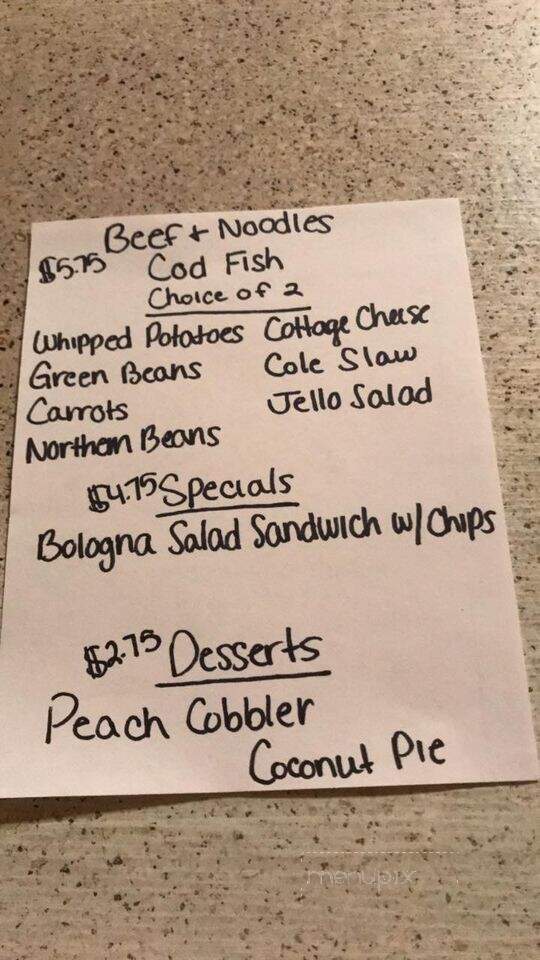 Beef + Noodles
$5.75 Cod Fish
Choice of 2
Whipped Potatoes Cottage Cheese
Green Beans Cole Slaw
Carrots Jello Salad
Northern Beans
$4.75 Specials
Bologna Salad Sandwich w/ Chips
$2.75 Desserts
Peach Cobbler
Coconut Pie
menupix